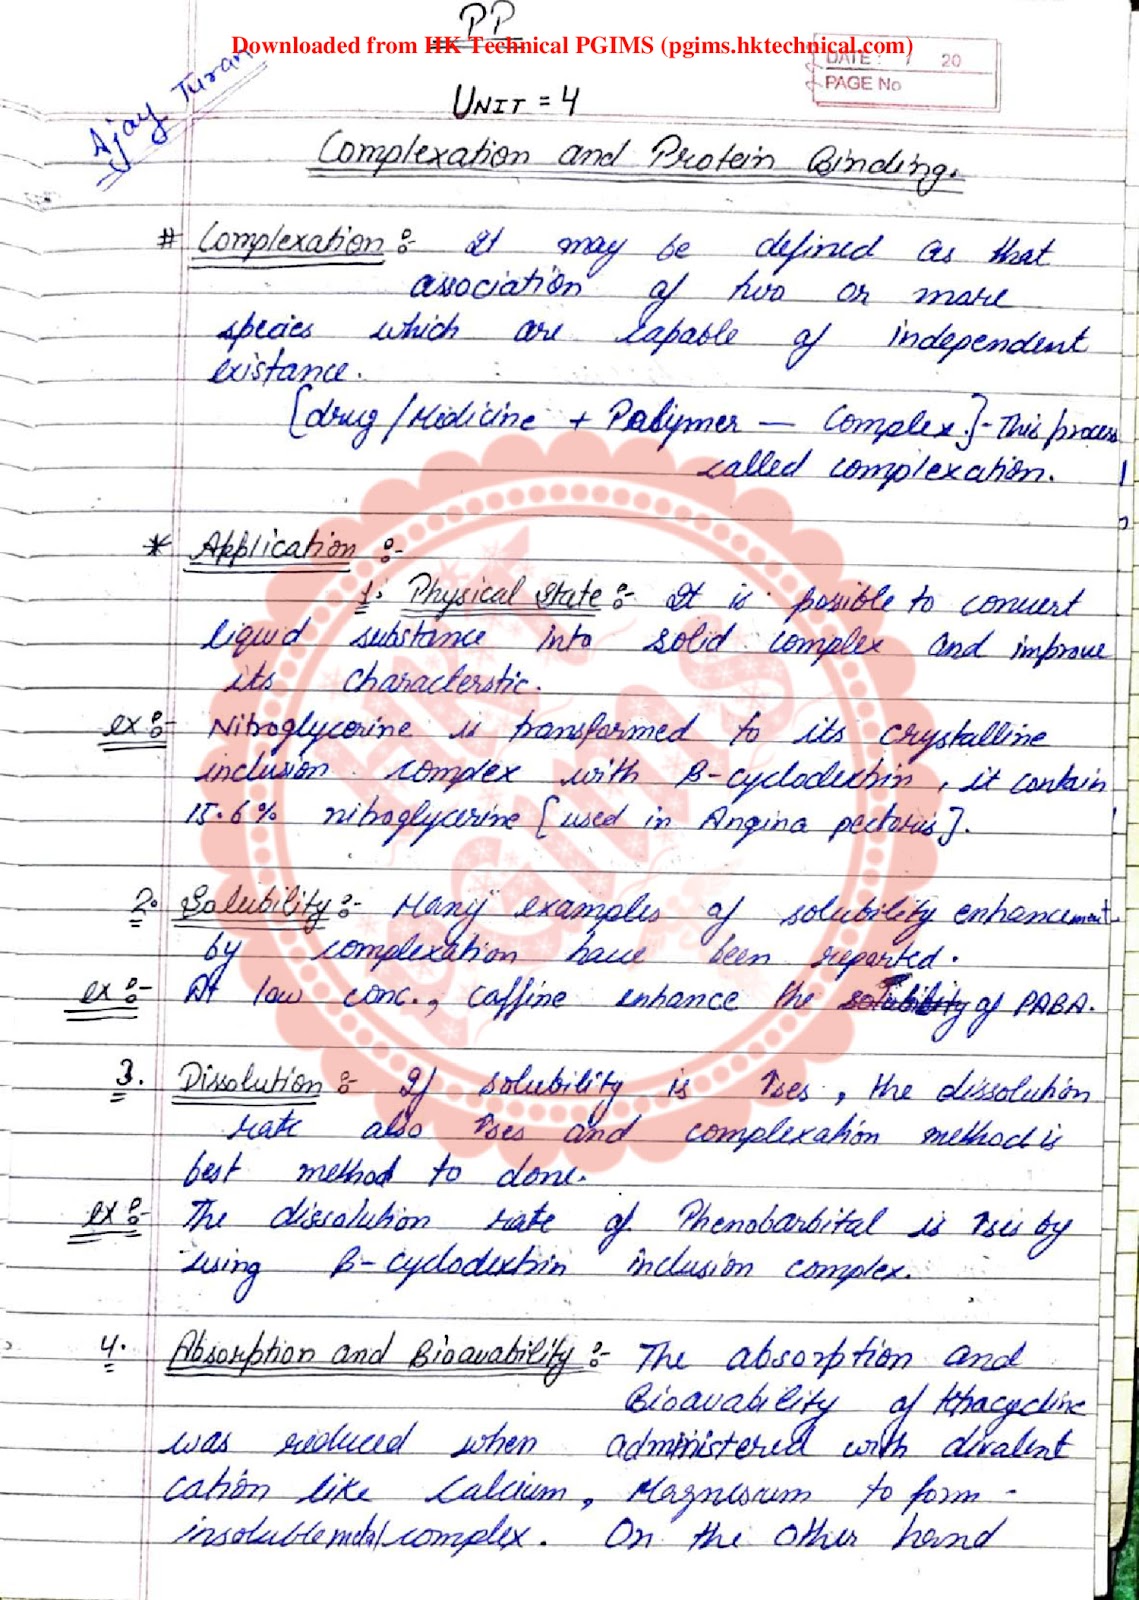 PP
Downloaded from HK Technical PGIMS (pgims.hktechnical.com)
Ajay Turan
DATE: / 20
PAGE No
UNIT = 4
Complexation and Protein Binding.
# Complexation :- It may be defined as that
association of two or more
species which are capable of independent
existance.
[drug/Medicine + Polymer — Complex.]- This process
called complexation.
* Application :-
1. Physical State :- It is possible to convert
liquid substance into solid complex and improve
its characterstic.
ex :- Nitroglycerine is transformed to its crystalline
inclusion complex with B-cyclodextrin, it contain
15.6% nitroglycerine [used in Angina pectoris].
2. Solubility :- Many examples of solubility enhancement
by complexation have been reported.
ex :- At low conc., caffine enhance the solubility of PABA.
3. Dissolution :- If solubility is ↑ses, the dissolution
rate also ↑ses and complexation method is
best method to done.
ex :- The dissolution rate of Phenobarbital is ↑ses by
using B-cyclodextrin inclusion complex.
4. Absorption and Bioavability :- The absorption and
Bioavability of tetracycline
was reduced when administered with divalent
cation like calcium, Magnesium to form -
insoluble metal complex. On the other hand
HK
PGIMS